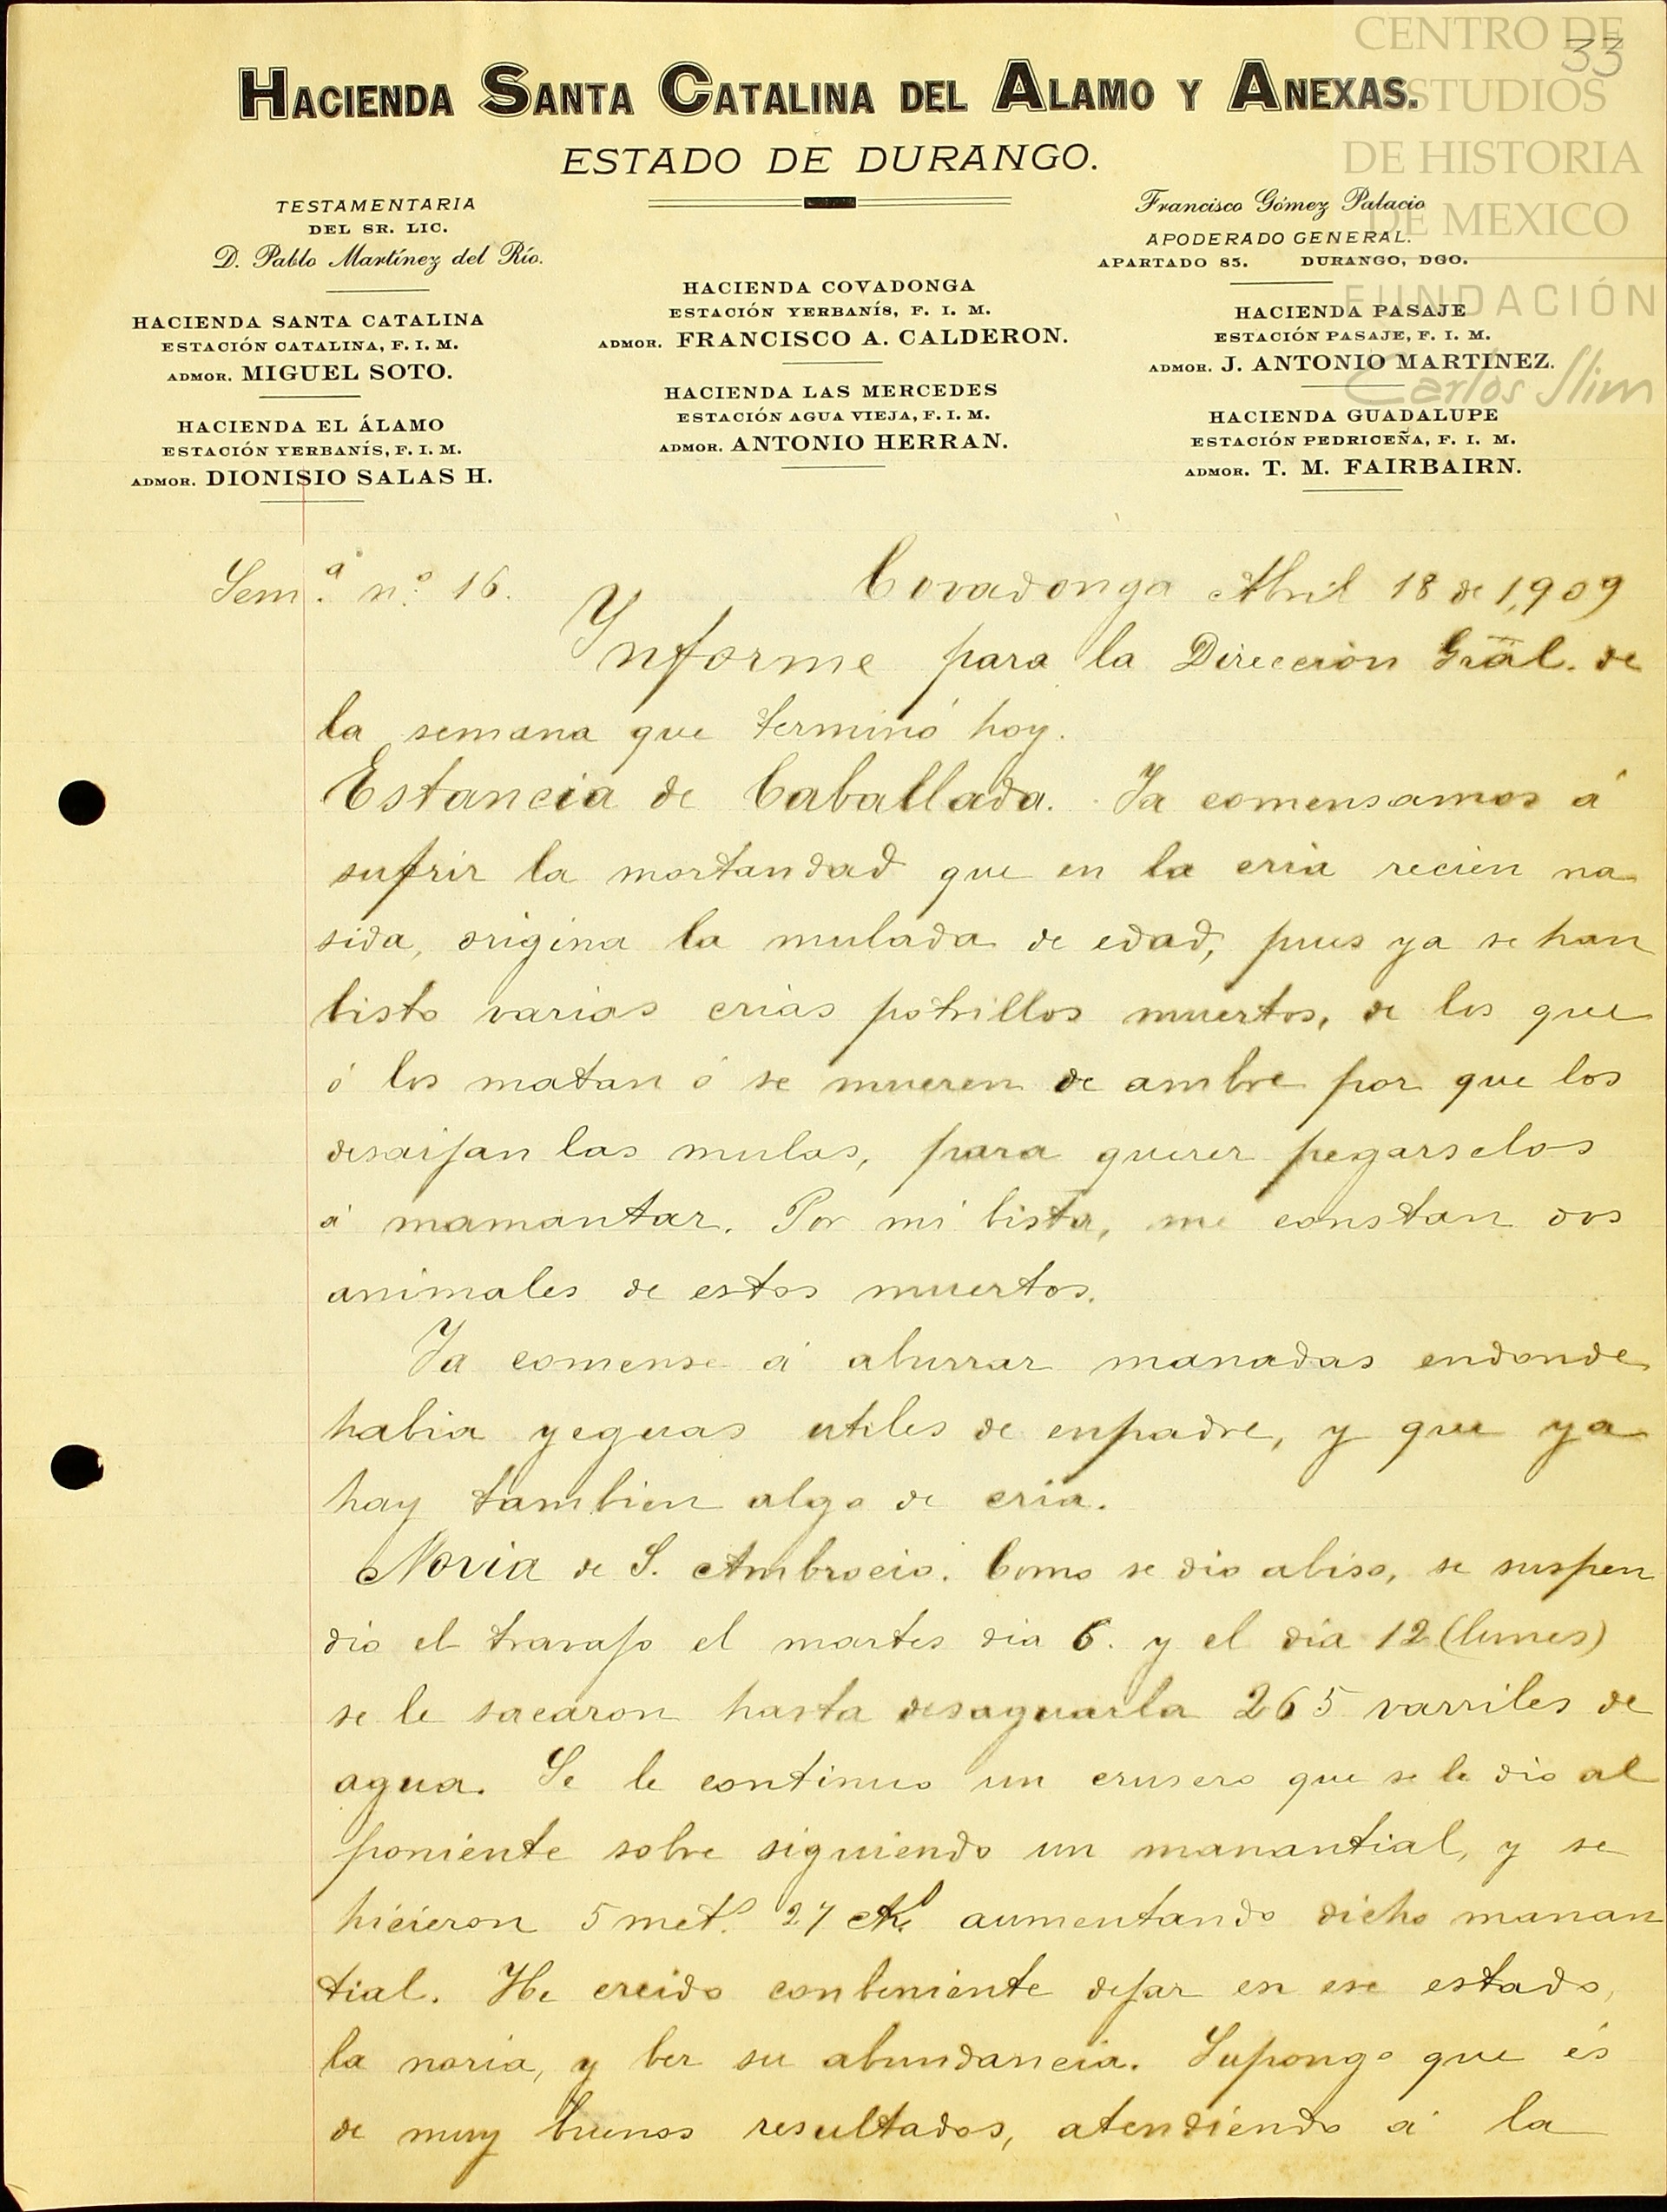 CENTRO DE
ESTUDIOS
DE HISTORIA
DE MEXICO
FUNDACIÓN
Carlos Slim
33
HACIENDA SANTA CATALINA DEL ALAMO Y ANEXAS.
ESTADO DE DURANGO.
TESTAMENTARIA
DEL SR. LIC.
D. Pablo Martínez del Río.
HACIENDA SANTA CATALINA
ESTACIÓN CATALINA, F. I. M.
ADMOR. MIGUEL SOTO.
HACIENDA EL ÁLAMO
ESTACIÓN YERBANÍS, F. I. M.
ADMOR. DIONISIO SALAS H.
HACIENDA COVADONGA
ESTACIÓN YERBANÍS, F. I. M.
ADMOR. FRANCISCO A. CALDERON.
HACIENDA LAS MERCEDES
ESTACIÓN AGUA VIEJA, F. I. M.
ADMOR. ANTONIO HERRAN.
Francisco Gómez Palacio
APODERADO GENERAL.
APARTADO 85. DURANGO, DGO.
HACIENDA PASAJE
ESTACIÓN PASAJE, F. I. M.
ADMOR. J. ANTONIO MARTINEZ.
HACIENDA GUADALUPE
ESTACIÓN PEDRICEÑA, F. I. M.
ADMOR. T. M. FAIRBAIRN.
Sem.ª n.º 16. Covadonga Abril 18 de 1,909
Ynforme para la Direccion Gral. de
la semana que terminó hoy.
Estancia de Caballada. Ya comensamos á
sufrir la mortandad que en la cria recien na
sida, origina la mulada de edad, pues ya se han
bisto varias crias potrillos muertos, de los que
ó los matan ó se mueren de ambre por que los
desaijan las mulas, para querer pegarselos
á mamantar. Por mi bista, me constan dos
animales de estos muertos.
Ya comense á aburrar manadas endonde
habia yeguas utiles de enpadre, y que ya
hay tambien algo de cria.
Noria de S. Ambrocio. Como se dio abiso, se suspen
dio el travajo el martes dia 6. y el dia 12 (lunes)
se le sacaron hasta desaguarla 265 varriles de
agua. Se le continuo un crusero que se le dio al
poniente sobre siguiendo un manantial, y se
hicieron 5 met.s 27 aumentando dicho manan
tial. He creido conbeniente dejar en ese estado,
la noria, y ber su abundancia. Supongo que és
de muy buenos resultados, atendiendo á la